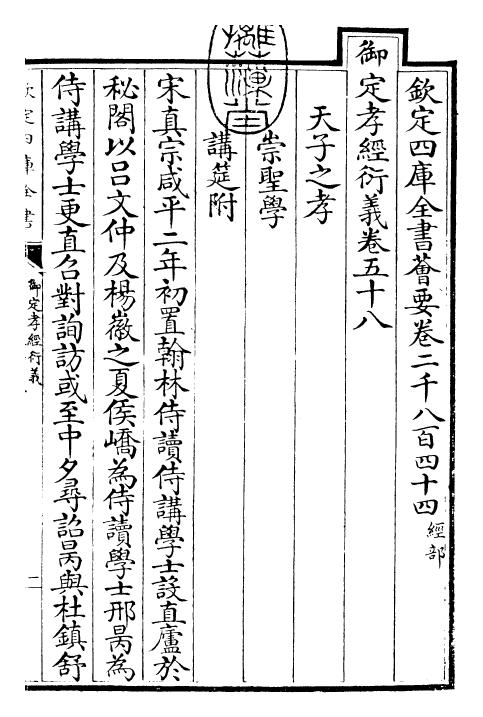 欽定四庫全書薈要卷二千八百四十四 經部
御定孝經衍義卷五十八
天子之孝
崇聖學
講筵附
宋真宗咸平二年初置翰林侍讀侍講學士設直廬於
秘閣以呂文仲及楊徽之夏侯嶠為侍讀學士邢昺為
侍講學士更直召對詢訪或至中夕尋詔昺與杜鎮舒
欽定四庫全書
御定孝經衍義